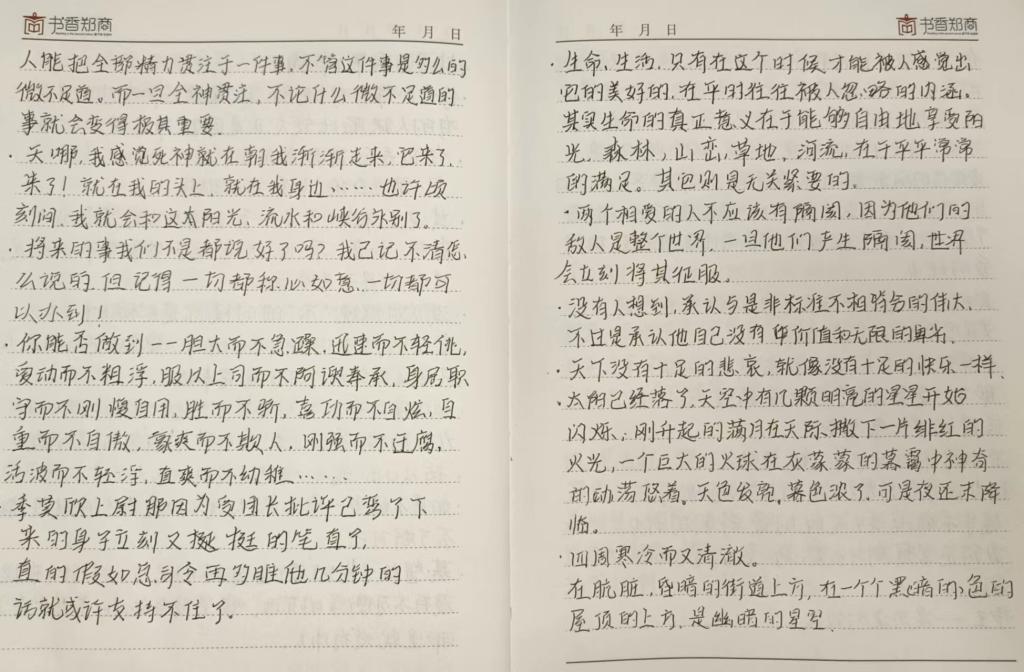 书香郑商
年 月 日
人能把全部精力贯注于一件事,不管这件事是多么的
微不足道。而一旦全神贯注,不论什么微不足道的
事就会变得极其重要.
· 天哪,我感觉死神就在朝我渐渐走来,它来了,
来了!就在我的头上,就在我身边……也许顷
刻间,我就会和这太阳光,流水和峡谷分别了。
· 将来的事我们不是都说好了吗?我已记不清怎
么说的,但记得一切都称心如意,一切都可
以办到!
· 你能否做到——胆大而不急躁,迅速而不轻佻,
爱动而不粗浮,服从上司而不阿谀奉承,身居职
守而不刚愎自用,胜而不骄,喜功而不自炫,自
重而不自傲,豪爽而不欺人,刚强而不迂腐,
活波而不轻浮,直爽而不幼稚……
· 季莫欣上尉那因为受团长批评已弯了下
来的身子立刻又挺挺的笔直了,
直的假如总司令再多瞧他几分钟的
话就或许支持不住了。
年 月 日
书香郑商
· 生命,生活,只有在这个时候才能被人感觉出
它的美好的,在平时往往被人忽略的内涵。
其实生命的真正意义在于能够自由地享受阳
光,森林,山峦,草地,河流,在于平平常常
的满足。其它则是无关紧要的。
· 两个相爱的人不应该有隔阂,因为他们的
敌人是整个世界,一旦他们产生隔阂,世界
会立刻将其征服。
· 没有人想到,承认与是非标准不相符合的伟大,
不过是承认他自己没有价值和无限的卑劣.
· 天下没有十足的悲哀,就像没有十足的快乐一样.
· 太阳已经落了,天空中有几颗明亮的星星开始
闪烁;刚升起的满月在天际撒下一片绯红的
火光,一个巨大的火球在灰蒙蒙的暮霭中神奇
的动荡悠着。天色发亮,暮色浓了,可是夜还未降
临。
· 四周寒冷而又清澈。
在肮脏,昏暗的街道上方,在一个个黑暗的色的
屋顶的上方,是幽暗的星空